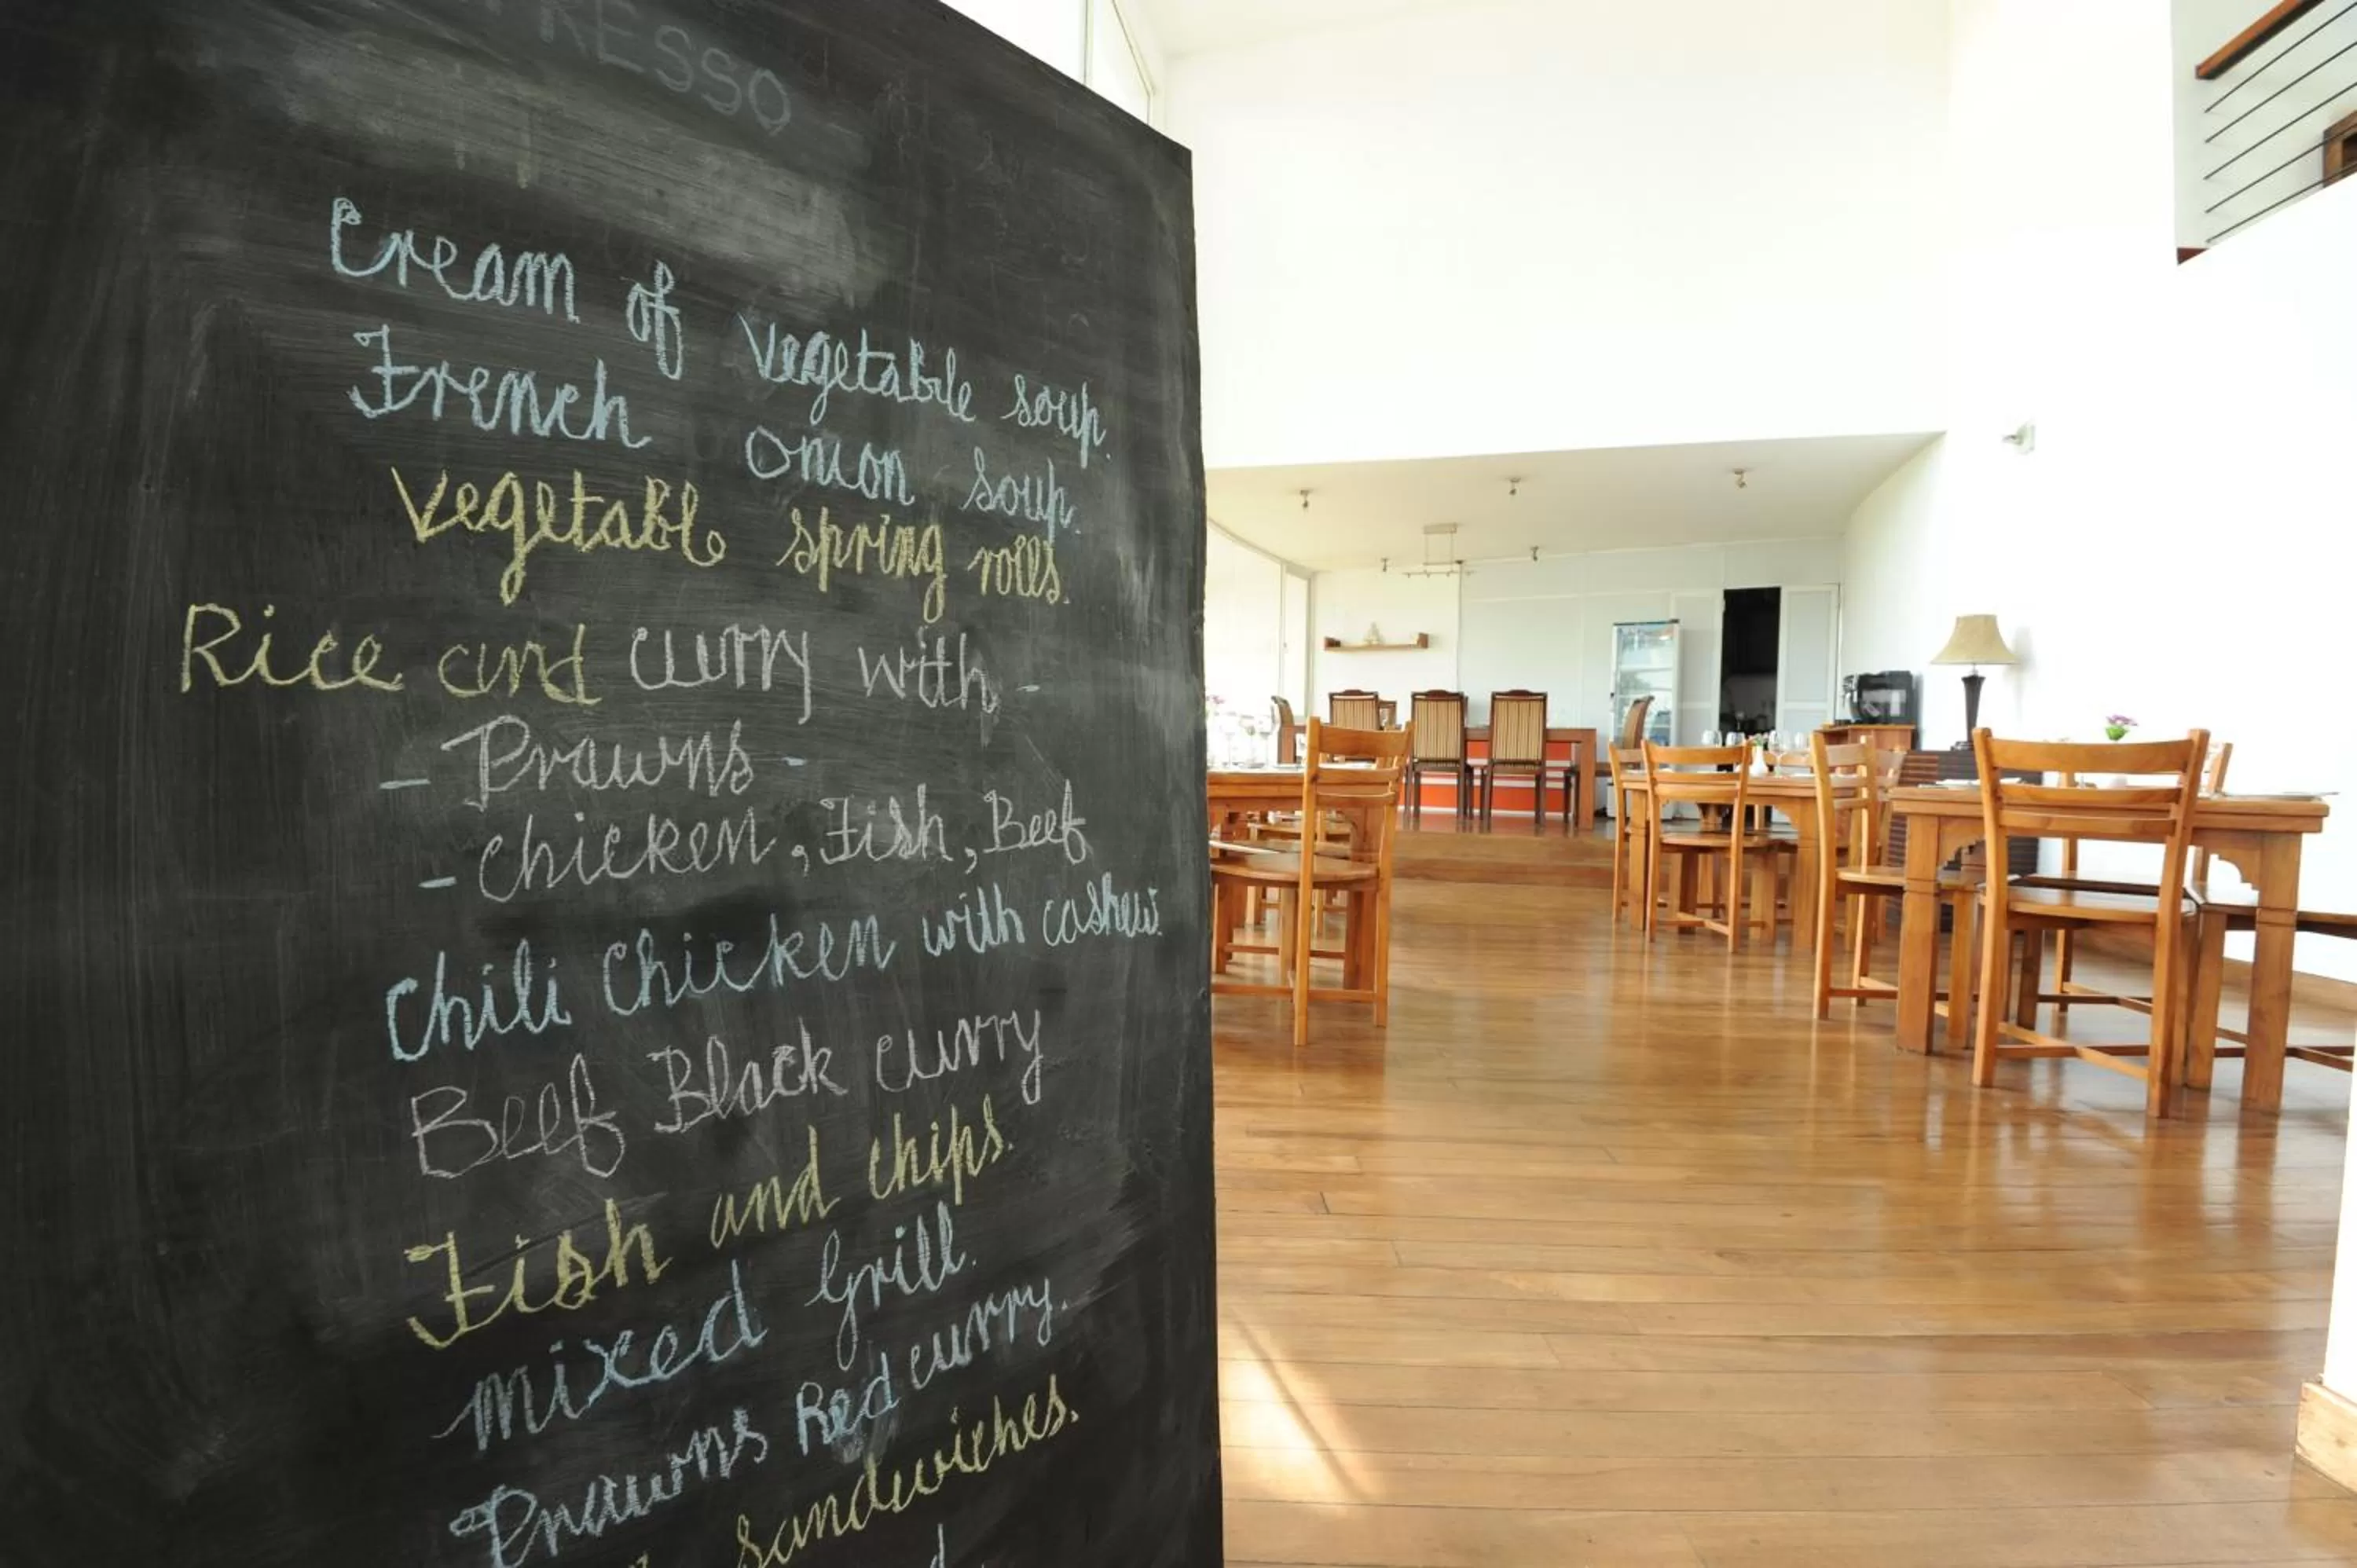 RESSO
Cream of vegetable soup.
French onion soup.
Vegetable spring rolls.
Rice and curry with -
- Prawns -
- Chicken, Fish, Beef
Chili Chicken with cashew.
Beef Black curry
Fish and chips.
mixed Grill.
Prawns Red curry.
sandwiches.